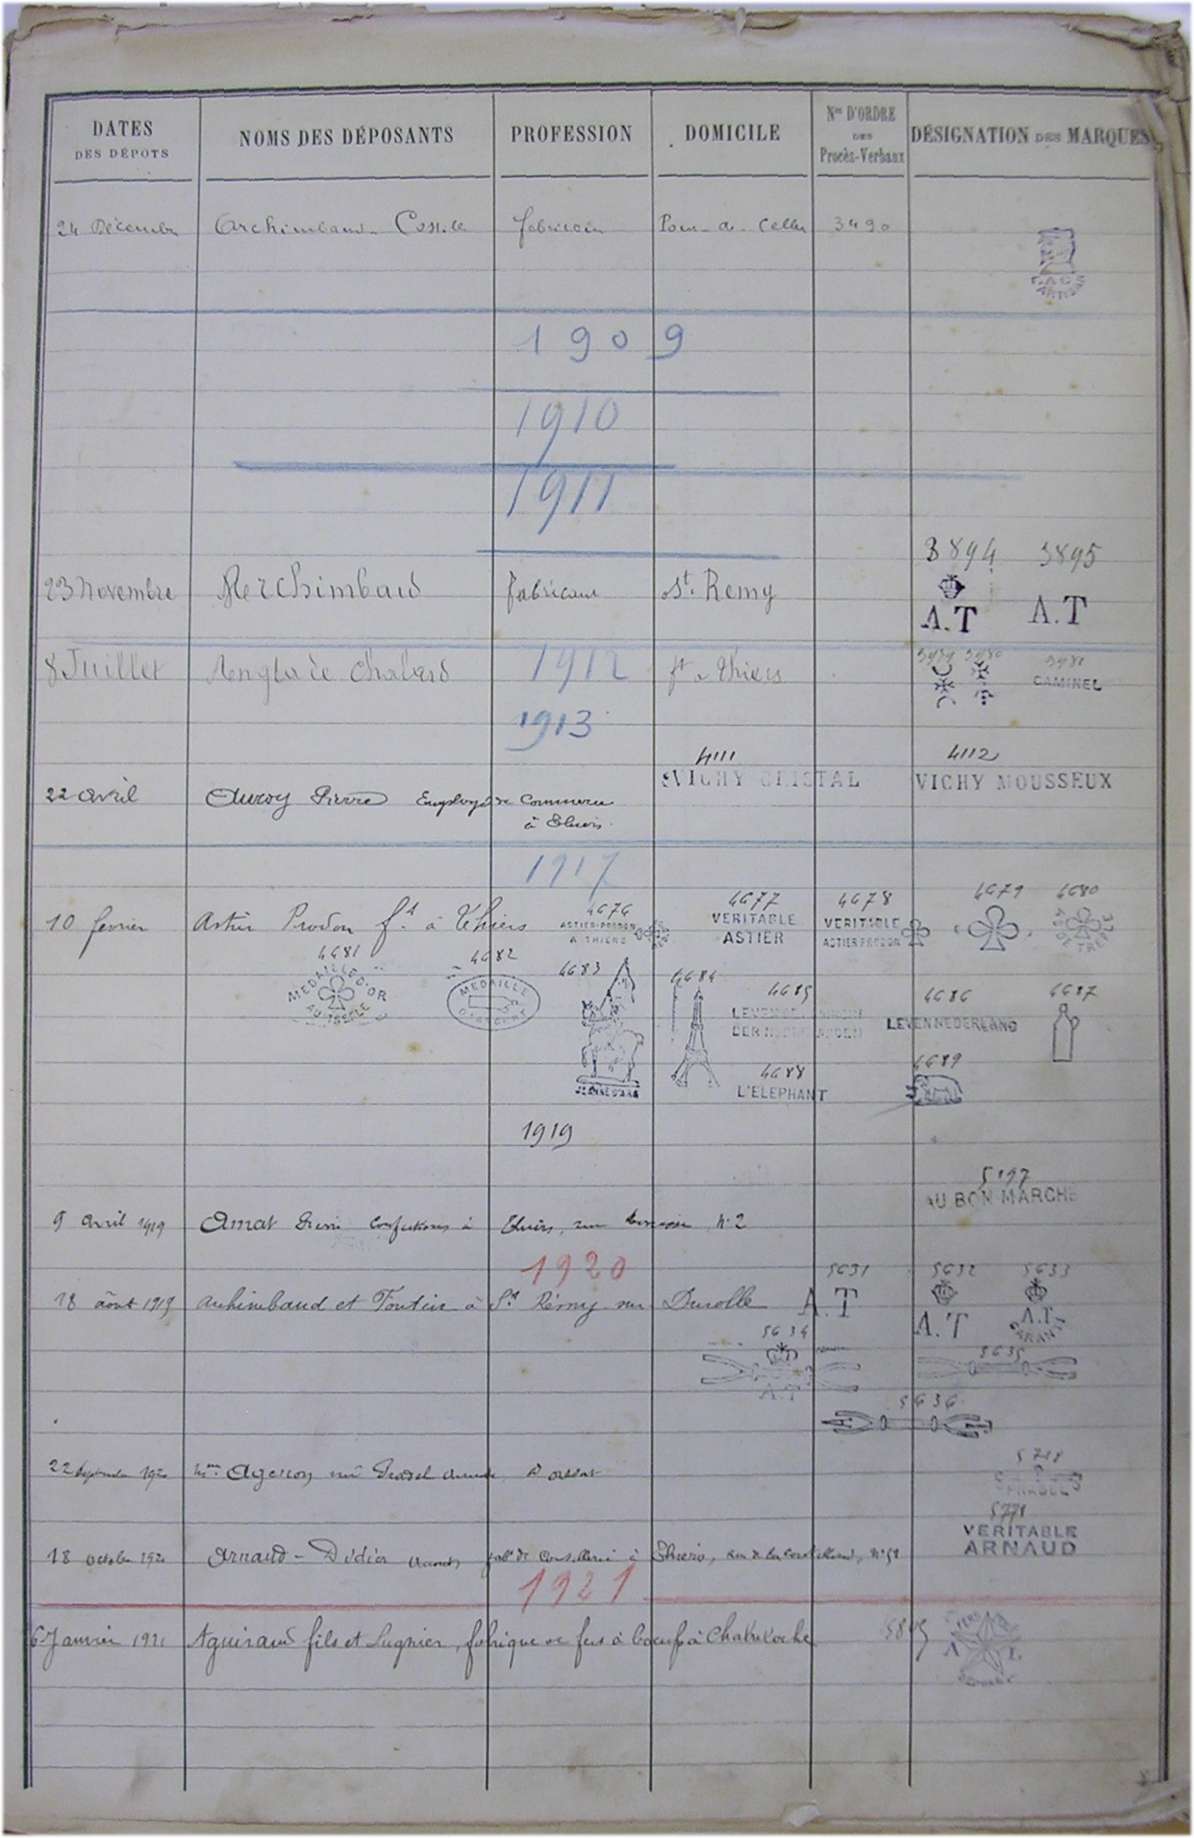 DATES DES DÉPOTS
NOMS DES DÉPOSANTS
PROFESSION
DOMICILE
Nos D'ORDRE DES Procès-Verbaux
DÉSIGNATION DES MARQUES
24 Décembre Archimbaud 3490
1909
1910
1911
3894 3895
23 Novembre Archimbaud fabricant St. Remy
A.T A.T
3979 3980 3981
8 Juillet Anglade Chabard 1912 ft a Thiers CAMINEL
1913
4111 4112
VICHY CRISTAL VICHY MOUSSEUX
22 Avril Auroy Pierre Employé de Commerce
à Thiers
1917
4676 4677 4678 4679 4680
10 fevrier Astier Prodon ft à Thiers
ASTIER-PRODON A THIERS
VERITABLE ASTIER
VERITABLE ASTIER PRODON
AS DE TREFLE
4681 4682 4683 4684 4685 4686 4687
MEDAILLE D'OR
MEDAILLE
DER NEDERLANDEN
LEVENNEDERLAND
4688 4689
JEANNE D'ARC L'ELEPHANT
1919
5197
AU BON MARCHE
9 avril 1919 Amat confections à Thiers, rue N° 2
1920
5631 5632 5633
18 août 1919 Archimbaud et Fontein à St Rémy sur Durolle A.T A.T A.T GARANTI
5634 5635
A.T
5636
22 Septembre 1920 Mme Ageron née Pradel
5718
PRADEL
5778
VERITABLE
ARNAUD
18 octobre 1920 Arnaud - Didier fabt de Coutellerie à Thiers, rue de la Coutellerie, N° 58
1921
6 Janvier 1921 Aguiraud fils et Sugnier, fabrique de fers à boeufs à Chabreloche
A L